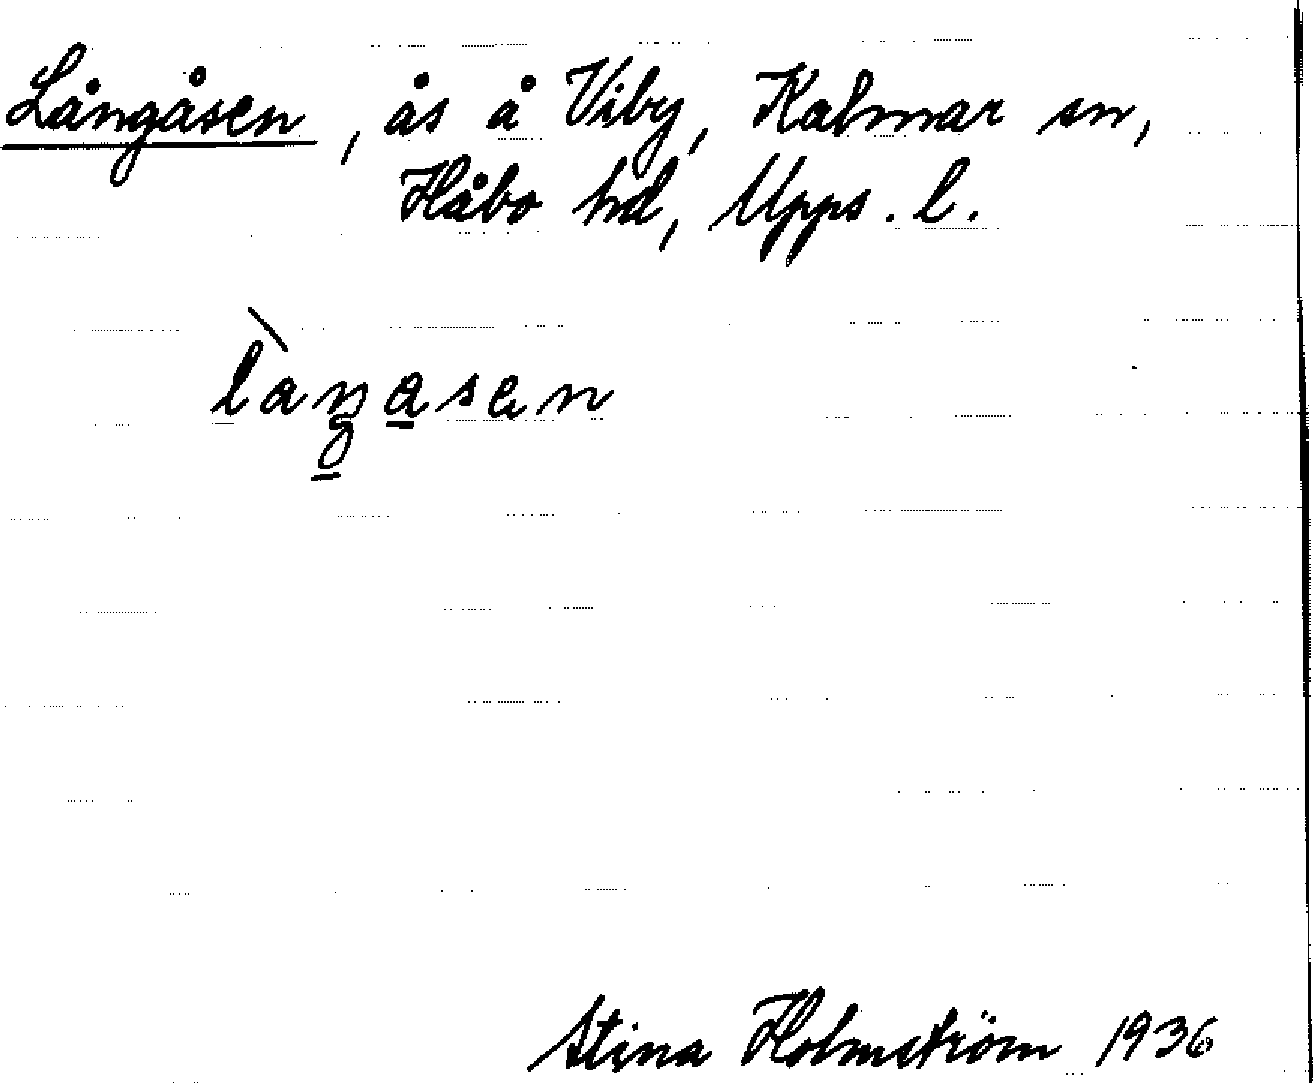 Långåsen, ås å Viby, Kalmar sn,
Håbo hd, Upps. l.
Stina Holmström 1936